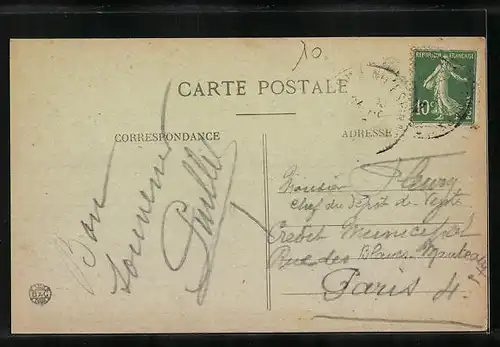 10
CARTE POSTALE
REPUBLIQUE FRANÇAISE
10c
CORRESPONDANCE
ADRESSE
Bon
souvenir
Monsieur Fleury
Chef du Dépôt de Vente
Crédit Municipal
Rue des Blancs Manteaux
Paris 4e